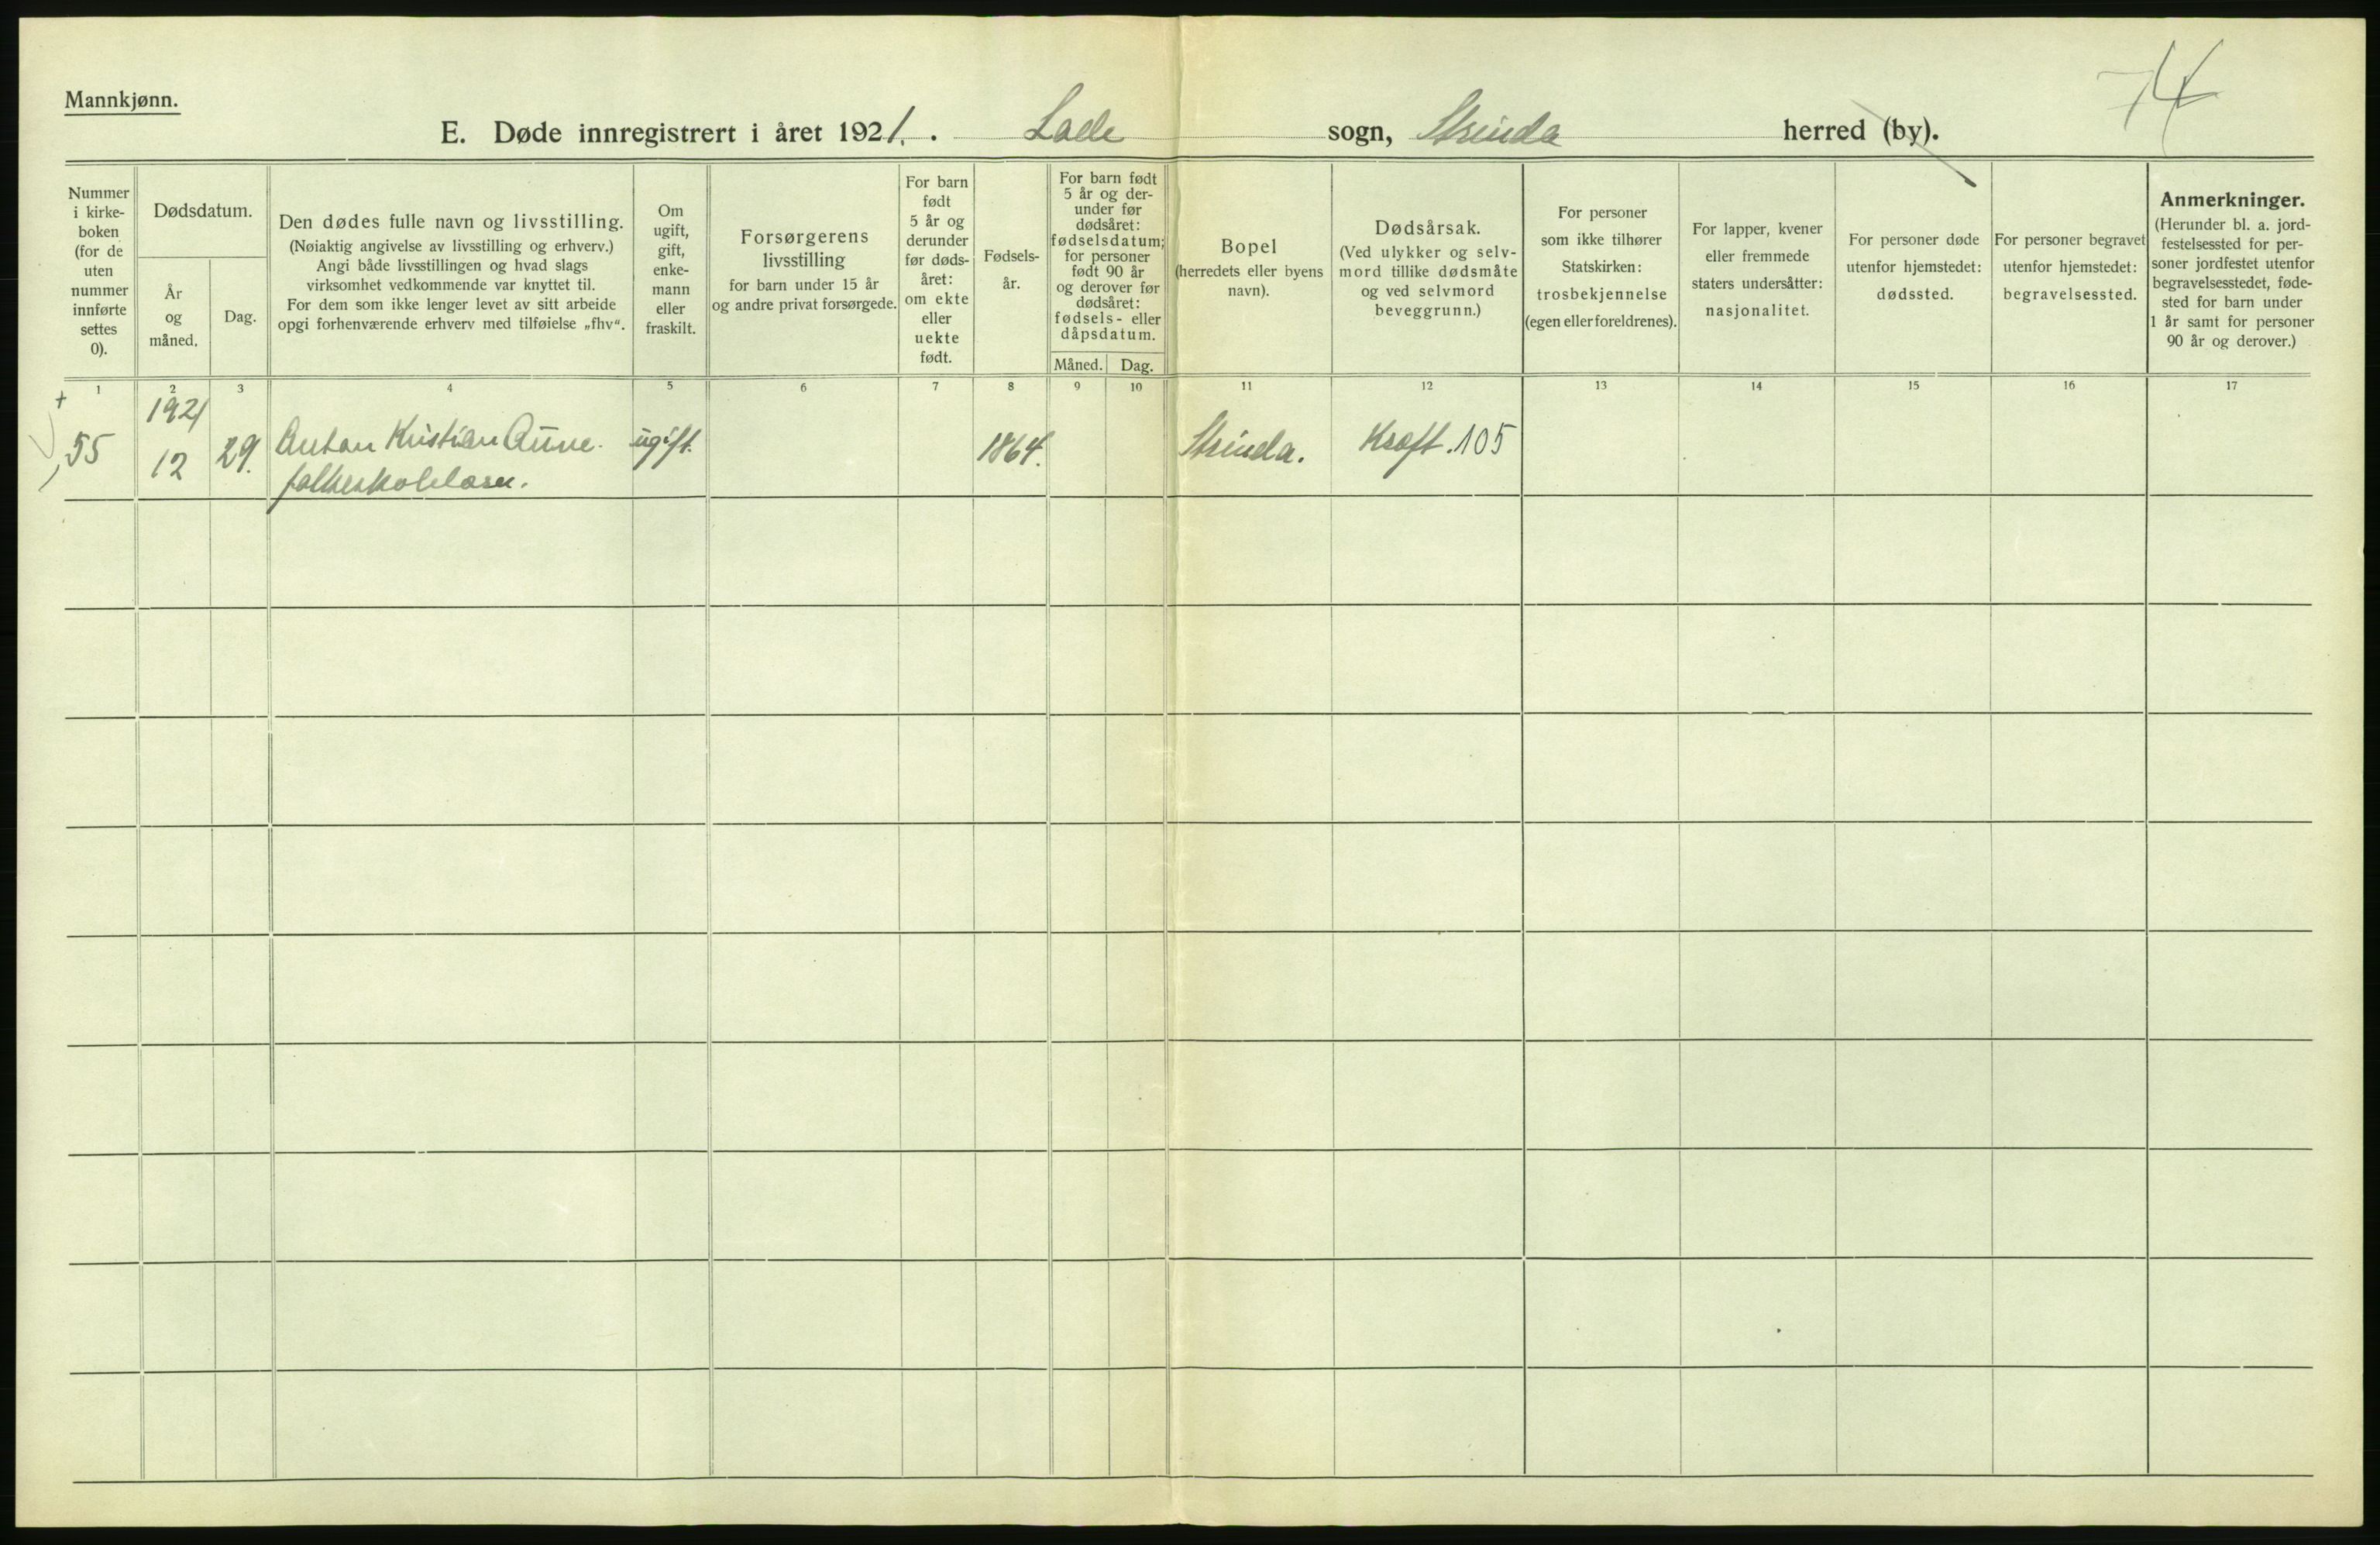 74
Mannkjønn.
E. Døde innregistrert i året 1921. Lade sogn, Strinda herred (by).
Nummer
i kirke-
boken
(for de
uten
nummer
innførte
settes
0).
Dødsdatum.
År
og
måned.
Dag.
Den dødes fulle navn og livsstilling.
(Nøiaktig angivelse av livsstilling og erhverv.)
Angi både livsstillingen og hvad slags
virksomhet vedkommende var knyttet til.
For dem som ikke lenger levet av sitt arbeide
opgi forhenværende erhverv med tilføielse „fhv“.
Om
ugift,
gift,
enke-
mann
eller
fraskilt.
Forsørgerens
livsstilling
for barn under 15 år
og andre privat forsørgede.
For barn
født
5 år og
derunder
før døds-
året:
om ekte
eller
uekte
født.
Fødsels-
år.
For barn født
5 år og der-
under før
dødsåret:
fødselsdatum;
for personer
født 90 år
og derover før
dødsåret:
fødsels- eller
dåpsdatum.
Måned. Dag.
Bopel
(herredets eller byens
navn).
Dødsårsak.
(Ved ulykker og selv-
mord tillike dødsmåte
og ved selvmord
beveggrunn.)
For personer
som ikke tilhører
Statskirken:
trosbekjennelse
(egen eller foreldrenes).
For lapper, kvener
eller fremmede
staters undersåtter:
nasjonalitet.
For personer døde
utenfor hjemstedet:
dødssted.
For personer begravet
utenfor hjemstedet:
begravelsessted.
Anmerkninger.
(Herunder bl. a. jord-
festelsessted for per-
soner jordfestet utenfor
begravelsesstedet, føde-
sted for barn under
1 år samt for personer
90 år og derover.)
1 2 3 4 5 6 7 8 9 10 11 12 13 14 15 16 17
1921
55 12 29. Anton Kristian Aune. ugift. 1864. Strinda. Kræft. 105
folkeskolelærer.